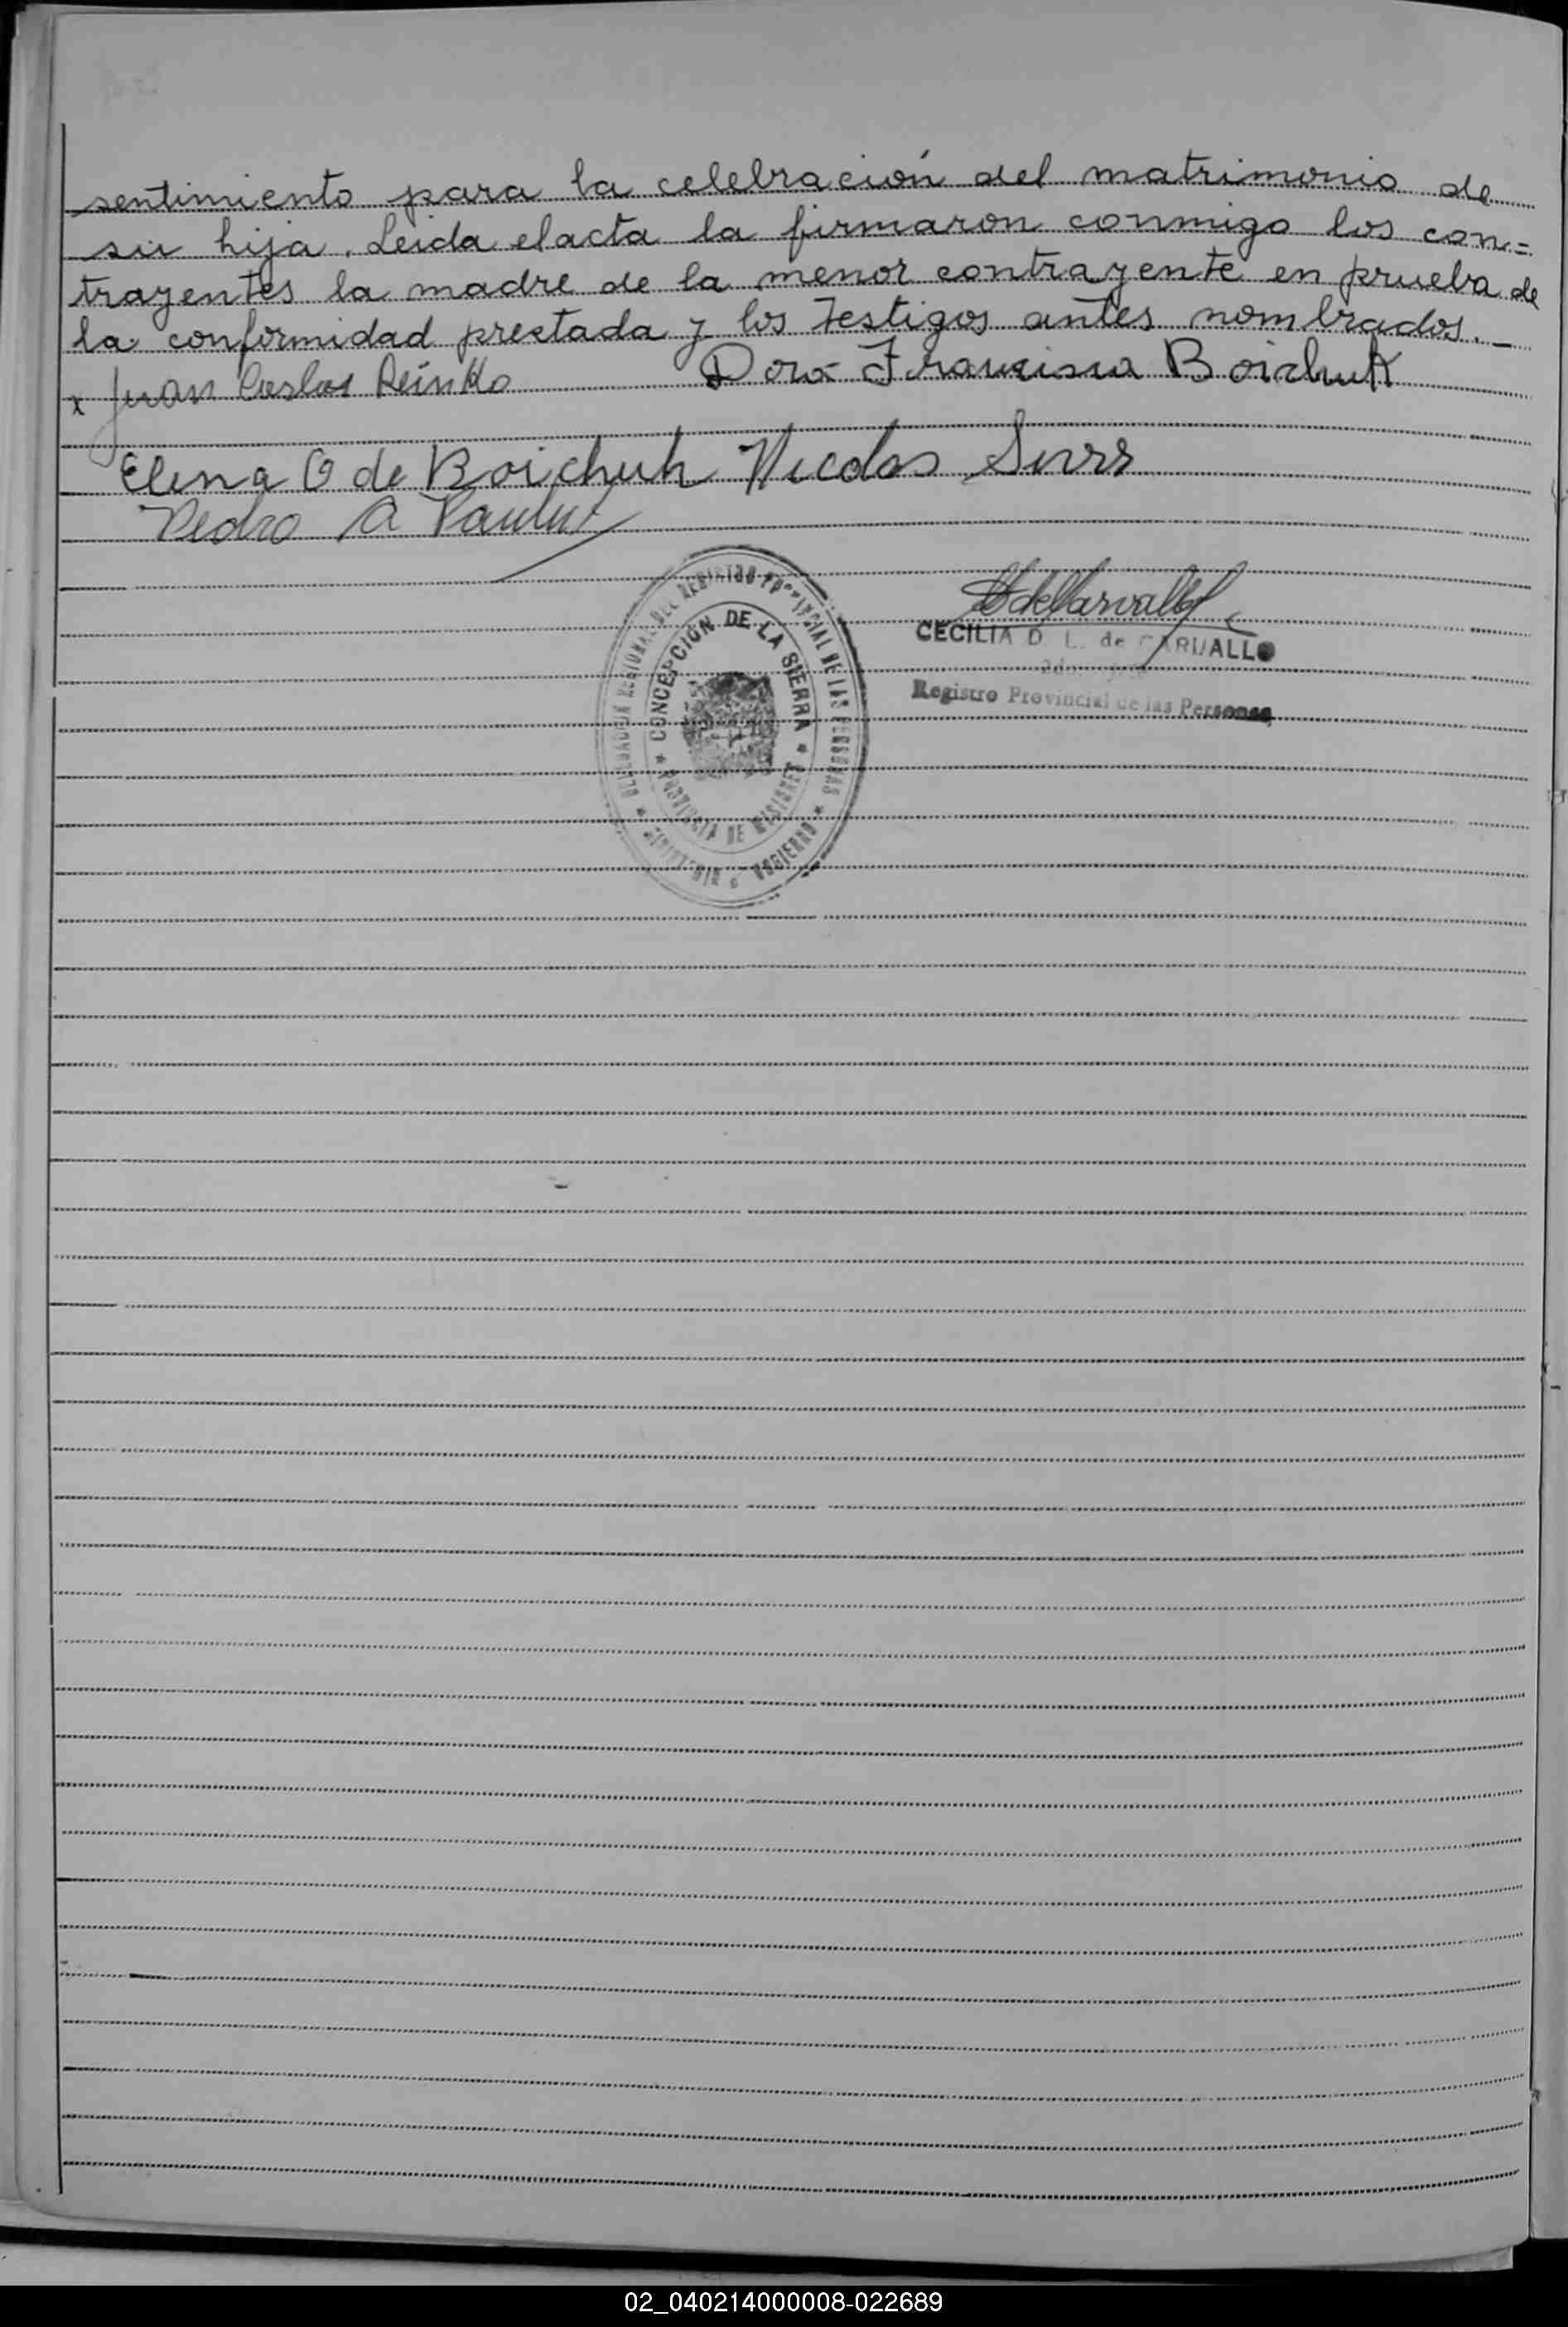 sentimiento para la celebración del matrimonio de
su hija. Leida el acta la firmaron conmigo los con=
trayentes la madre de la menor contrayente en prueba de
la conformidad prestada y los testigos antes nombrados.-
x Juan Carlos Dora Francisca Boichuk
Elena O de Boichuk Nicolas
Pedro A
DELEGACION REGIONAL DEL REGISTRO PROVINCIAL DE LAS PERSONAS
* CONCEPCIÓN DE LA SIERRA *
PROVINCIA DE MISIONES
GOBIERNO
de Carvallo
CECILIA D. L. de CARVALLO
Registro Provincial de las Personas
02_040214000008-022689